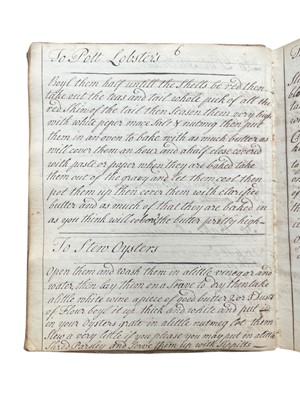 To Pott Lobsters 6
Boyl them half untill the Shells be red then
take out the teas and tail whole pick of all the
red Skin of the tail then Season them very high
with white paper mace Salt nutmeg then put
them in an oven to bake with as much butter as
will cover them an hour and a half close covered
with paste or paper when they are baked take
them out of the gravy and let them cool then
pot them up then cover them with clarifie
butter and as much of that they are baked in
as you think will colour the butter pretty high
To Stew Oysters
Open them and wash them in a little vinegar and
water, then lay them on a Seave to dry then take
a little white wine a piece of good butter 2 or 3 dusts
of Flour boyl it up thick and white and put
in your Oysters grate in a little nutmeg let them
Stew a very little if you please you may put in a little
Shred Parsley and Serve them up with Sippitts